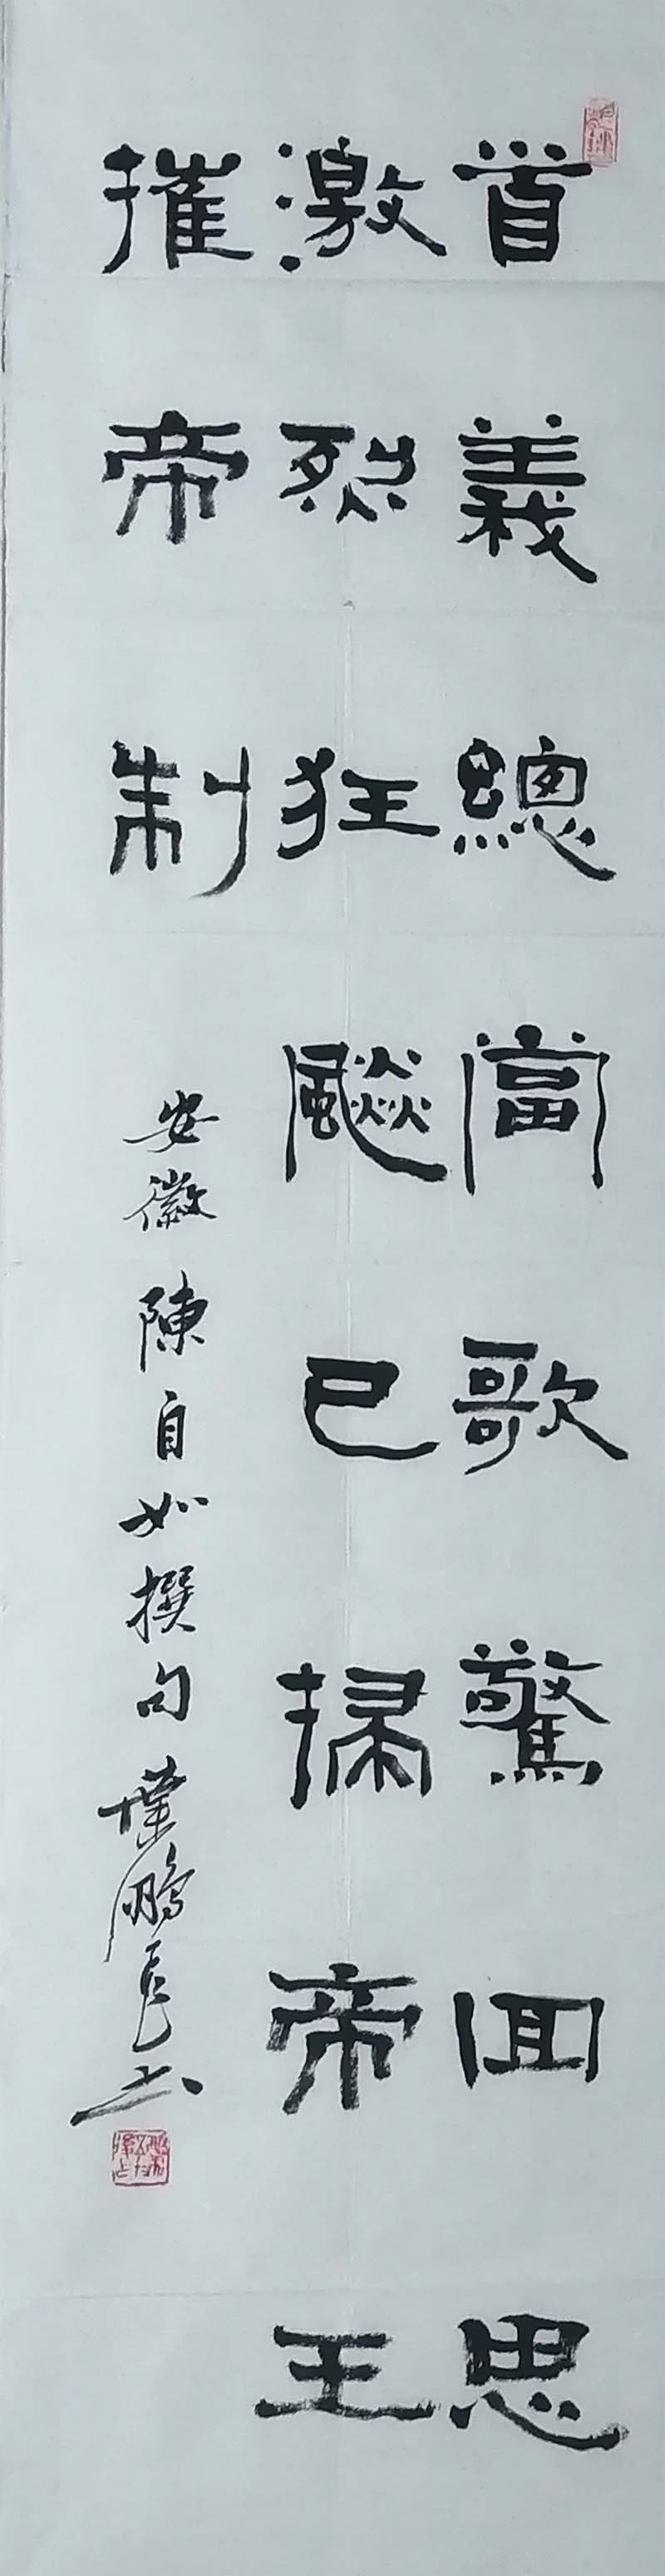 首義總當歌驚回思
激烈狂飈已掃帝王
摧帝制
安徽陳自如撰句葉鵬飛书